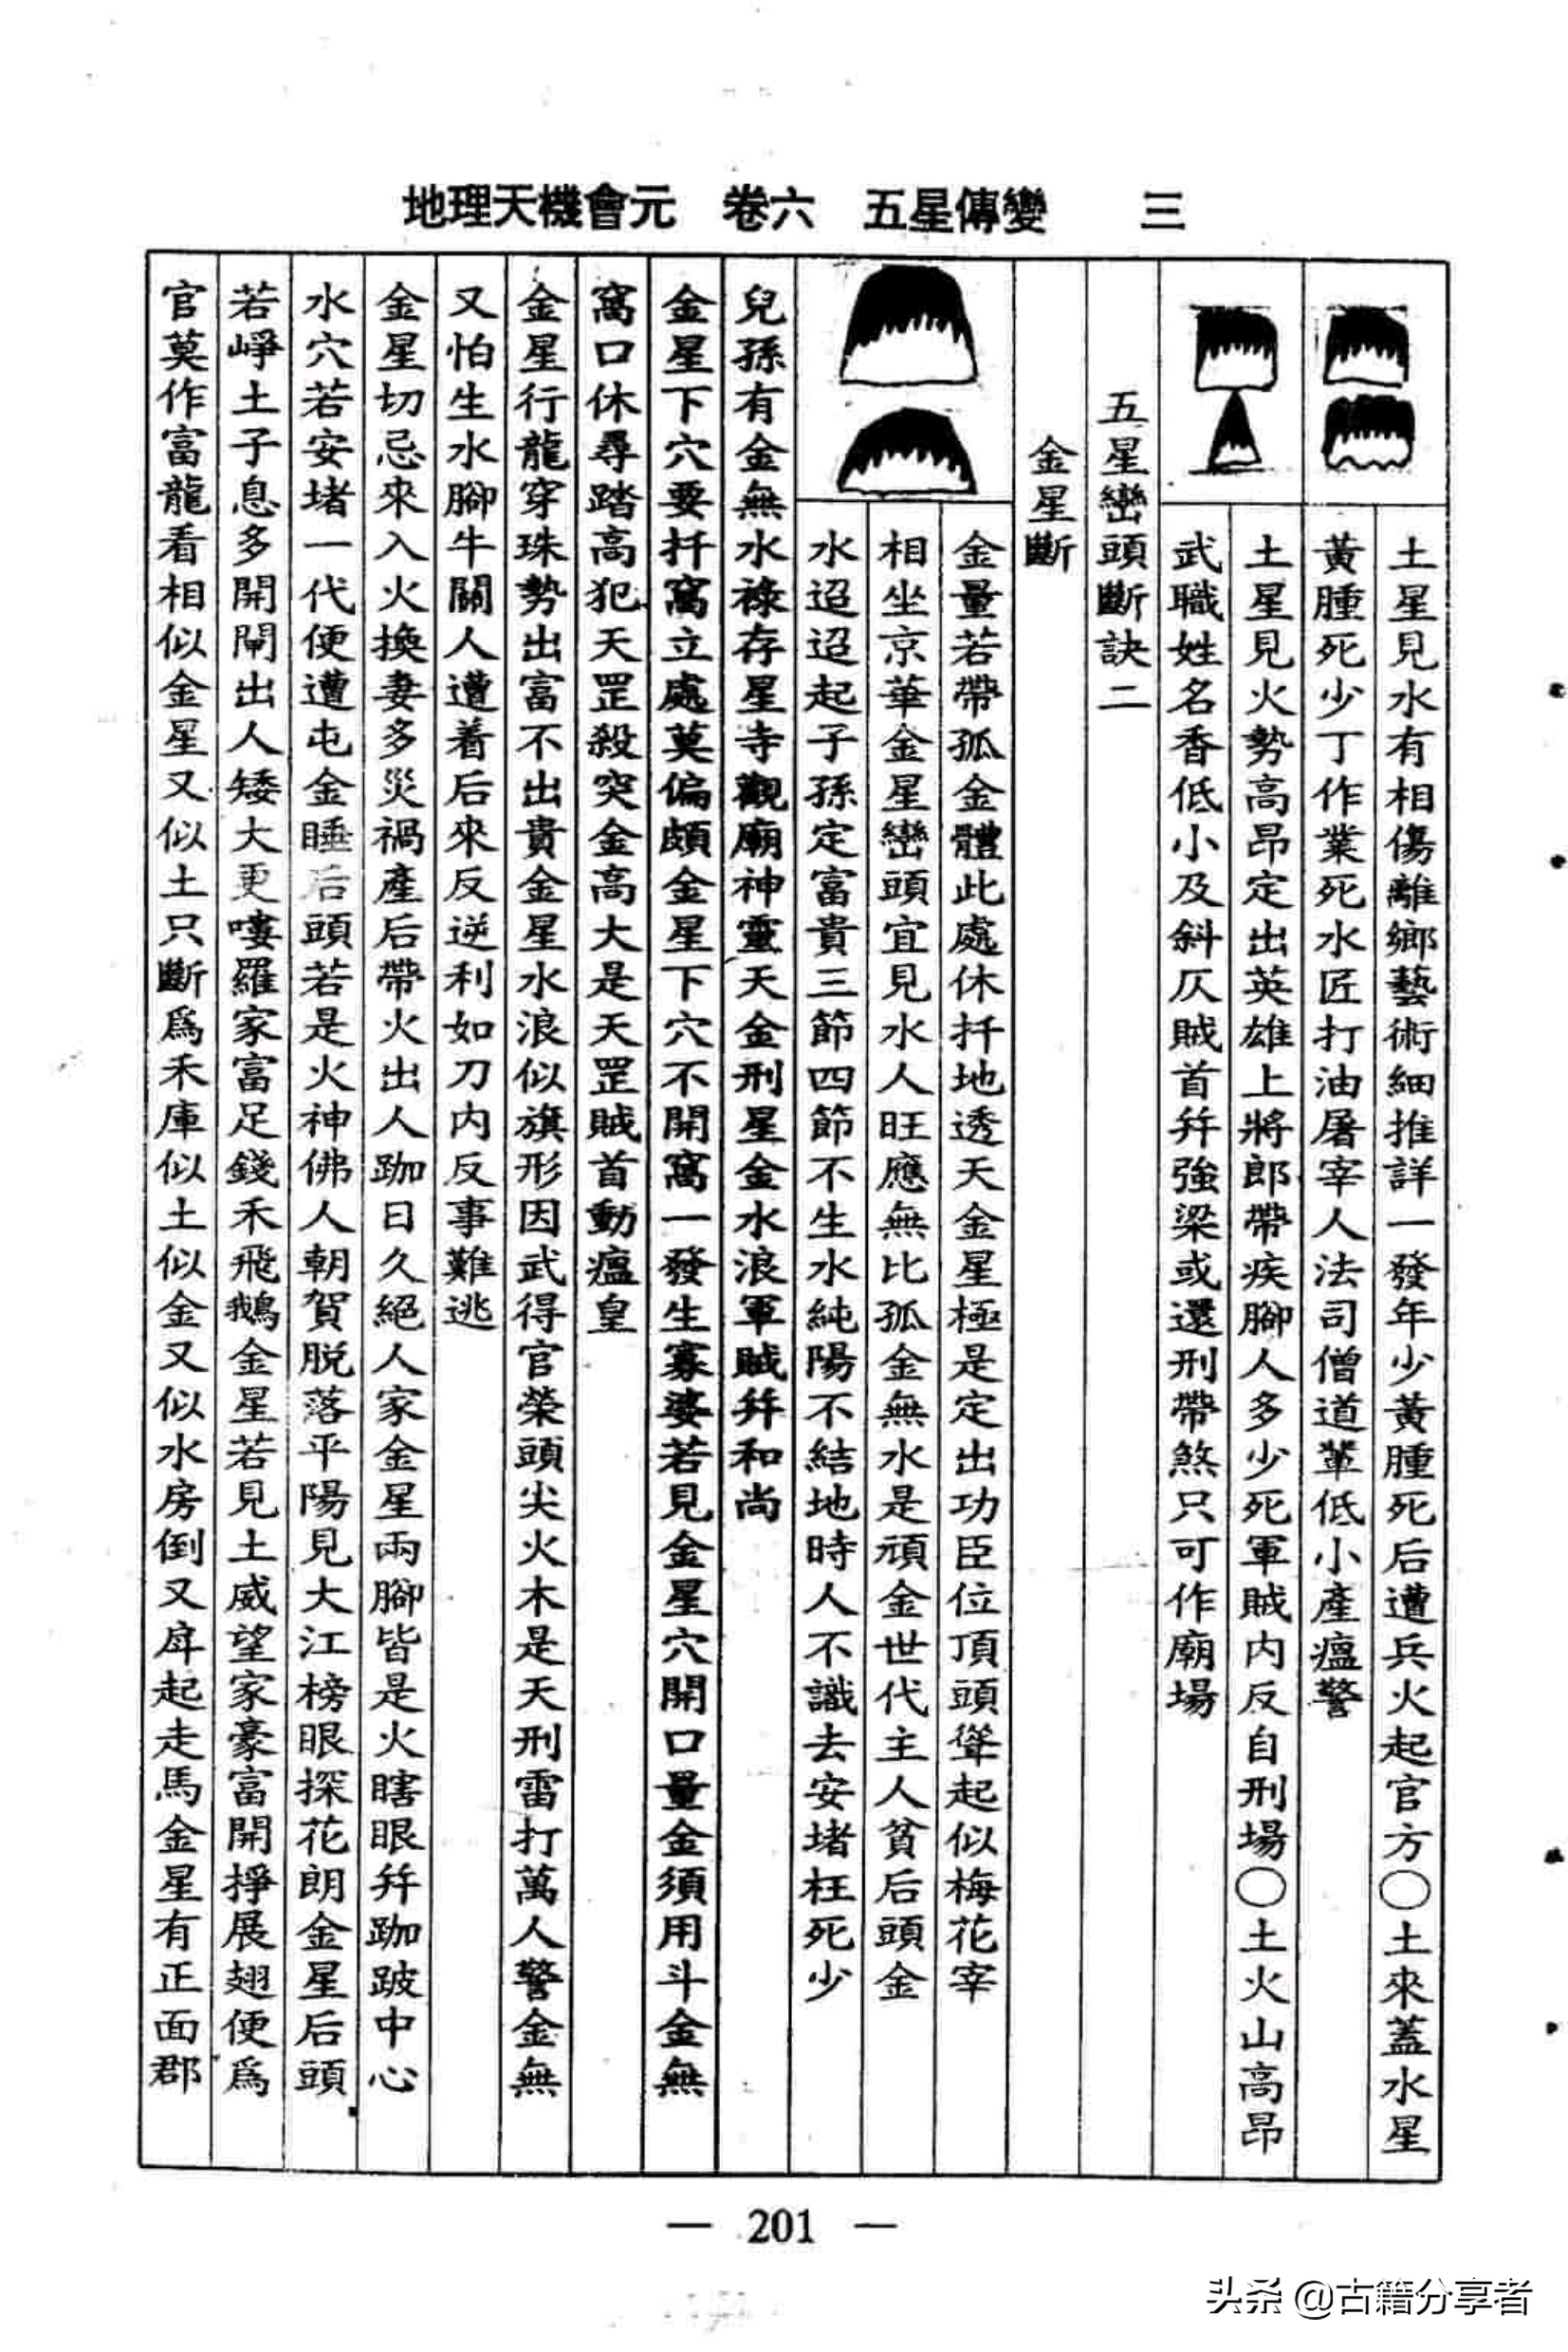 地理天機會元　卷六　五星傳變　三
土星見水有相傷離鄉藝術細推詳一發年少黃腫死后遭兵火起官方○土來蓋水星
黃腫死少丁作業死水匠打油屠宰人法司僧道輩低小產瘟警
土星見火勢高昂定出英雄上將郎帶疾腳人多少死軍賊内反自刑場○土火山高昂
武職姓名香低小及斜仄賊首幷強梁或還刑帶煞只可作廟場
五星巒頭斷訣二
金星斷
金量若帶孤金體此處休扦地透天金星極是定出功臣位頂頭聳起似梅花宰
相坐京華金星巒頭宜見水人旺應無比孤金無水是頑金世代主人貧后頭金
水迢迢起子孫定富貴三節四節不生水純陽不結地時人不識去安堵枉死少
兒孫有金無水祿存星寺觀廟神靈天金刑星金水浪軍賊幷和尚
金星下穴要扦窩立處莫偏頗金星下穴不開窩一發生寡婆若見金星穴開口量金須用斗金無
窩口休尋踏高犯天罡殺突金高大是天罡賊首動瘟皇
金星行龍穿珠勢出富不出貴金星水浪似旗形因武得官榮頭尖火木是天刑雷打萬人警金無
又怕生水腳牛關人遭着后來反逆利如刀内反事難逃
金星切忌來入火換妻多災禍產后帶火出人跏日久絕人家金星兩腳皆是火瞎眼幷跏跛中心
水穴若安堵一代便遭屯金睡后頭若是火神佛人朝賀脱落平陽見大江榜眼探花朗金星后頭
若崢土子息多開闡出人矮大更嘍羅家富足錢禾飛鵝金星若見土威望家豪富開掙展翅便爲
官莫作富龍看相似金星又似土只斷爲禾庫似土似金又似水房倒又庠起走馬金星有正面郡
— 201 —
头条 @古籍分享者